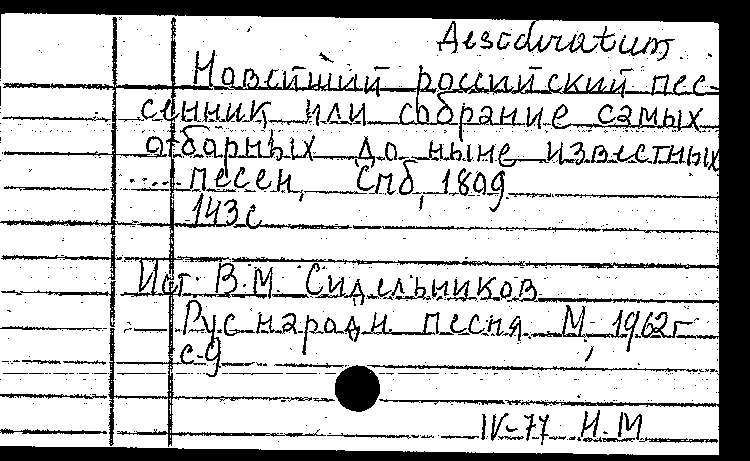 Desideratum
Новейший российский пес-
сенник, или собрание самых
отборных до ныне известных
..... песен, Спб, 1809
143с
Ист. В.М. Сидельников
Рус народн песня М, 1962г
с.9
IV-77 Н.М